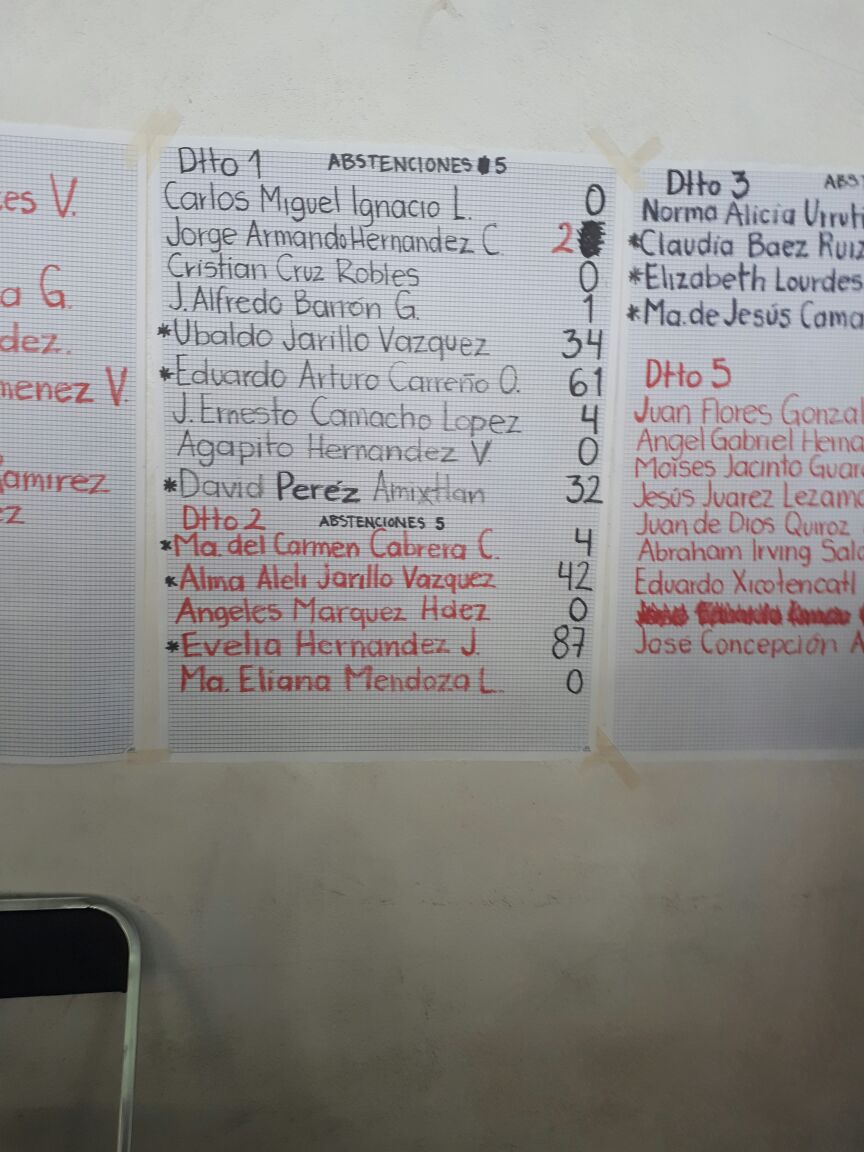 es V.
a G.
dez.
menez V.
amirez
ez
Dtto 1 ABSTENCIONES 5
Carlos Miguel Ignacio L. 0
Jorge Armando Hernandez C 2
Cristian Cruz Robles 0
J. Alfredo Barrón G. 1
*Ubaldo Jarillo Vazquez 34
*Eduardo Arturo Carreño O. 61
J. Ernesto Camacho Lopez 4
Agapito Hernandez V. 0
*David Peréz Amixtlan 32
Dtto 2 ABSTENCIONES 5
*Ma. del Carmen Cabrera C. 4
*Alma Aleli Jarillo Vazquez 42
Angeles Marquez Hdez 0
*Evelia Hernandez J. 87
Ma. Eliana Mendoza L. 0
Dtto 3 ABST
Norma Alicia Urruti
*Claudia Baez Ruiz
*Elizabeth Lourdes
*Ma. de Jesús Cama
Dtto 5
Juan Flores Gonzal
Angel Gabriel Herna
Moises Jacinto Guar
Jesús Juarez Lezama
Juan de Dios Quiroz
Abraham Irving Sala
Eduardo Xicotencatl
José Concepción A